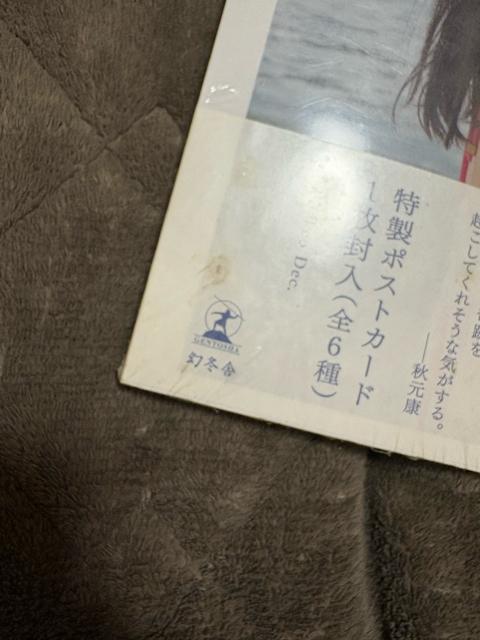 起こしてくれそうな気がする。
――秋元康
特製ポストカード
1枚封入(全6種)
Dec.
GENTOSHA
幻冬舎